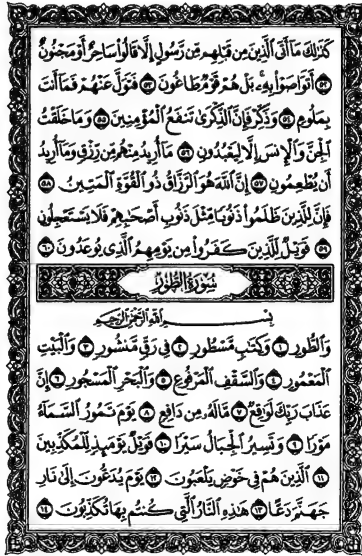 كَذَٰلِكَ مَآ أَتَى ٱلَّذِينَ مِن قَبْلِهِم مِّن رَّسُولٍ إِلَّا قَالُوا۟ سَاحِرٌ أَوْ مَجْنُونٌ
٥٢ أَتَوَاصَوْا۟ بِهِۦ ۚ بَلْ هُمْ قَوْمٌ طَاغُونَ ٥٣ فَتَوَلَّ عَنْهُمْ فَمَآ أَنتَ
بِمَلُومٍ ٥٤ وَذَكِّرْ فَإِنَّ ٱلذِّكْرَىٰ تَنفَعُ ٱلْمُؤْمِنِينَ ٥٥ وَمَا خَلَقْتُ
ٱلْجِنَّ وَٱلْإِنسَ إِلَّا لِيَعْبُدُونِ ٥٦ مَآ أُرِيدُ مِنْهُم مِّن رِّزْقٍ وَمَآ أُرِيدُ
أَن يُطْعِمُونِ ٥٧ إِنَّ ٱللَّهَ هُوَ ٱلرَّزَّاقُ ذُو ٱلْقُوَّةِ ٱلْمَتِينُ ٥٨
فَإِنَّ لِلَّذِينَ ظَلَمُوا۟ ذَنُوبًا مِّثْلَ ذَنُوبِ أَصْحَـٰبِهِمْ فَلَا يَسْتَعْجِلُونِ
٥٩ فَوَيْلٌ لِّلَّذِينَ كَفَرُوا۟ مِن يَوْمِهِمُ ٱلَّذِى يُوعَدُونَ ٦٠
سُورَةُ الطُّورِ
بِسْمِ ٱللَّهِ ٱلرَّحْمَـٰنِ ٱلرَّحِيمِ
وَٱلطُّورِ ١ وَكِتَـٰبٍ مَّسْطُورٍ ٢ فِى رَقٍّ مَّنشُورٍ ٣ وَٱلْبَيْتِ
ٱلْمَعْمُورِ ٤ وَٱلسَّقْفِ ٱلْمَرْفُوعِ ٥ وَٱلْبَحْرِ ٱلْمَسْجُورِ ٦ إِنَّ
عَذَابَ رَبِّكَ لَوَٰقِعٌ ٧ مَّا لَهُۥ مِن دَافِعٍ ٨ يَوْمَ تَمُورُ ٱلسَّمَآءُ
مَوْرًا ٩ وَتَسِيرُ ٱلْجِبَالُ سَيْرًا ١٠ فَوَيْلٌ يَوْمَئِذٍ لِّلْمُكَذِّبِينَ
١١ ٱلَّذِينَ هُمْ فِى خَوْضٍ يَلْعَبُونَ ١٢ يَوْمَ يُدَعُّونَ إِلَىٰ نَارِ
جَهَنَّمَ دَعًّا ١٣ هَـٰذِهِ ٱلنَّارُ ٱلَّتِى كُنتُم بِهَا تُكَذِّبُونَ ١٤